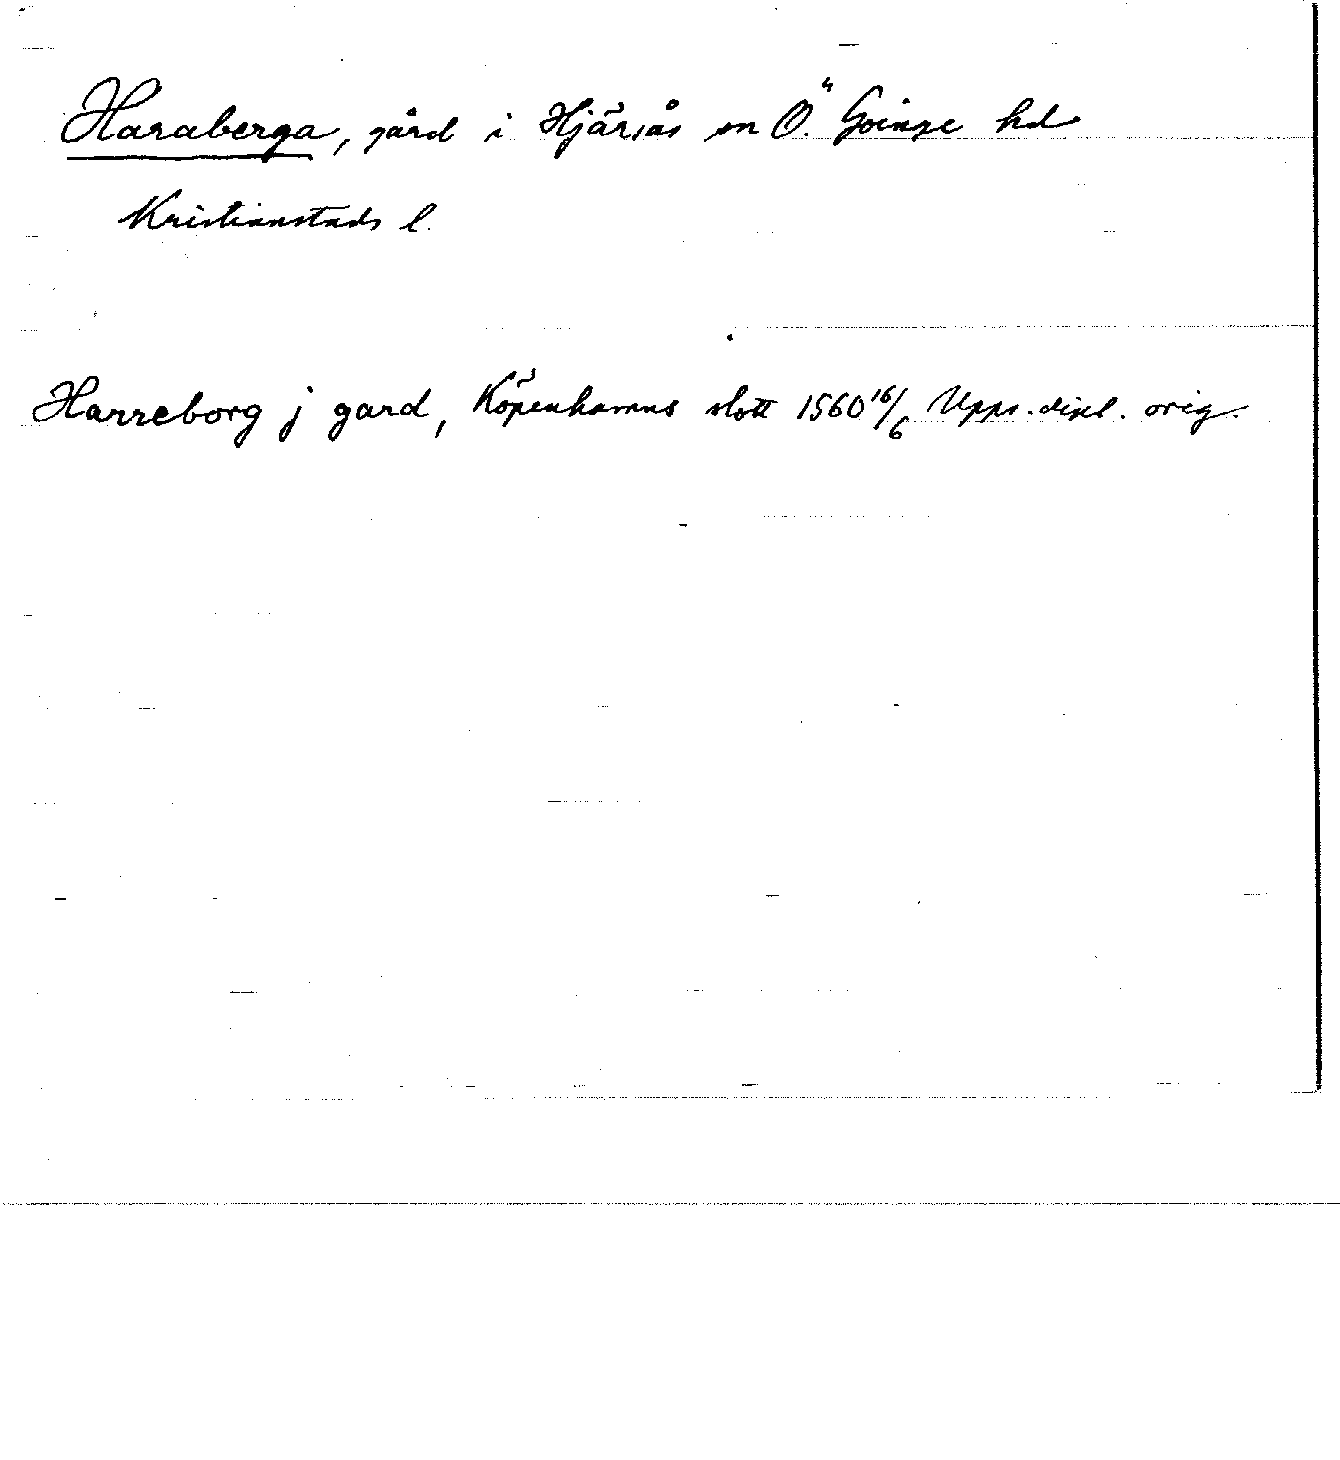 Haraberga, gård i Hjärsås sn Ö. Göinge hd
Kristianstads l.
Harreborg j gard, Köpenhamns slott 1560 16/6 Upps. dipl. orig.